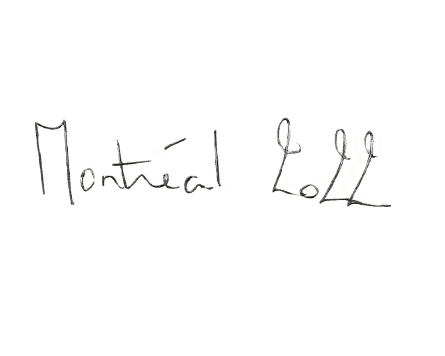 Montréal 2022